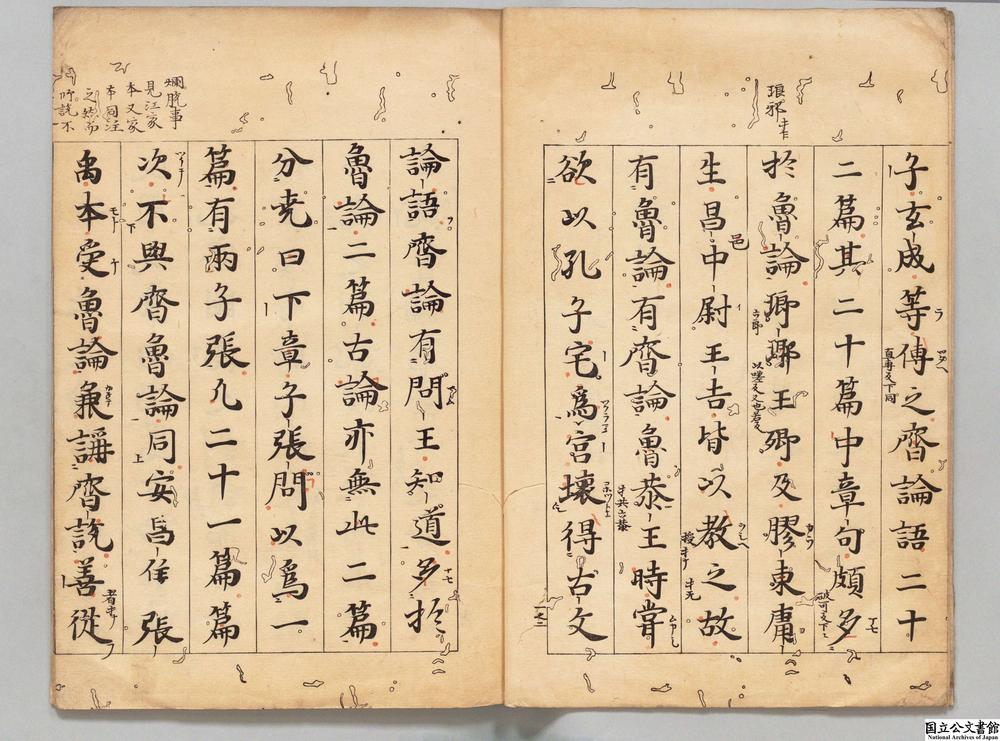 子玄成等傳之齊論語二十
二篇其二十篇中章句頗多
於魯論瑯瑘王卿及膠東庸
生昌邑中尉王吉皆以教之故
有魯論有齊論魯恭王時甞
欲以孔子宅爲宮壞得古文
論語齊論有問王知道多於
魯論二篇古論亦無此二篇
分尭曰下章子張問以爲一
篇有兩子張凡二十一篇篇
次不與齊魯論同安昌侯張
禹本受魯論兼講齊說善從
琅邪
爛脫事
見江家
本又家
本同注
国立公文書館
National Archives of Japan